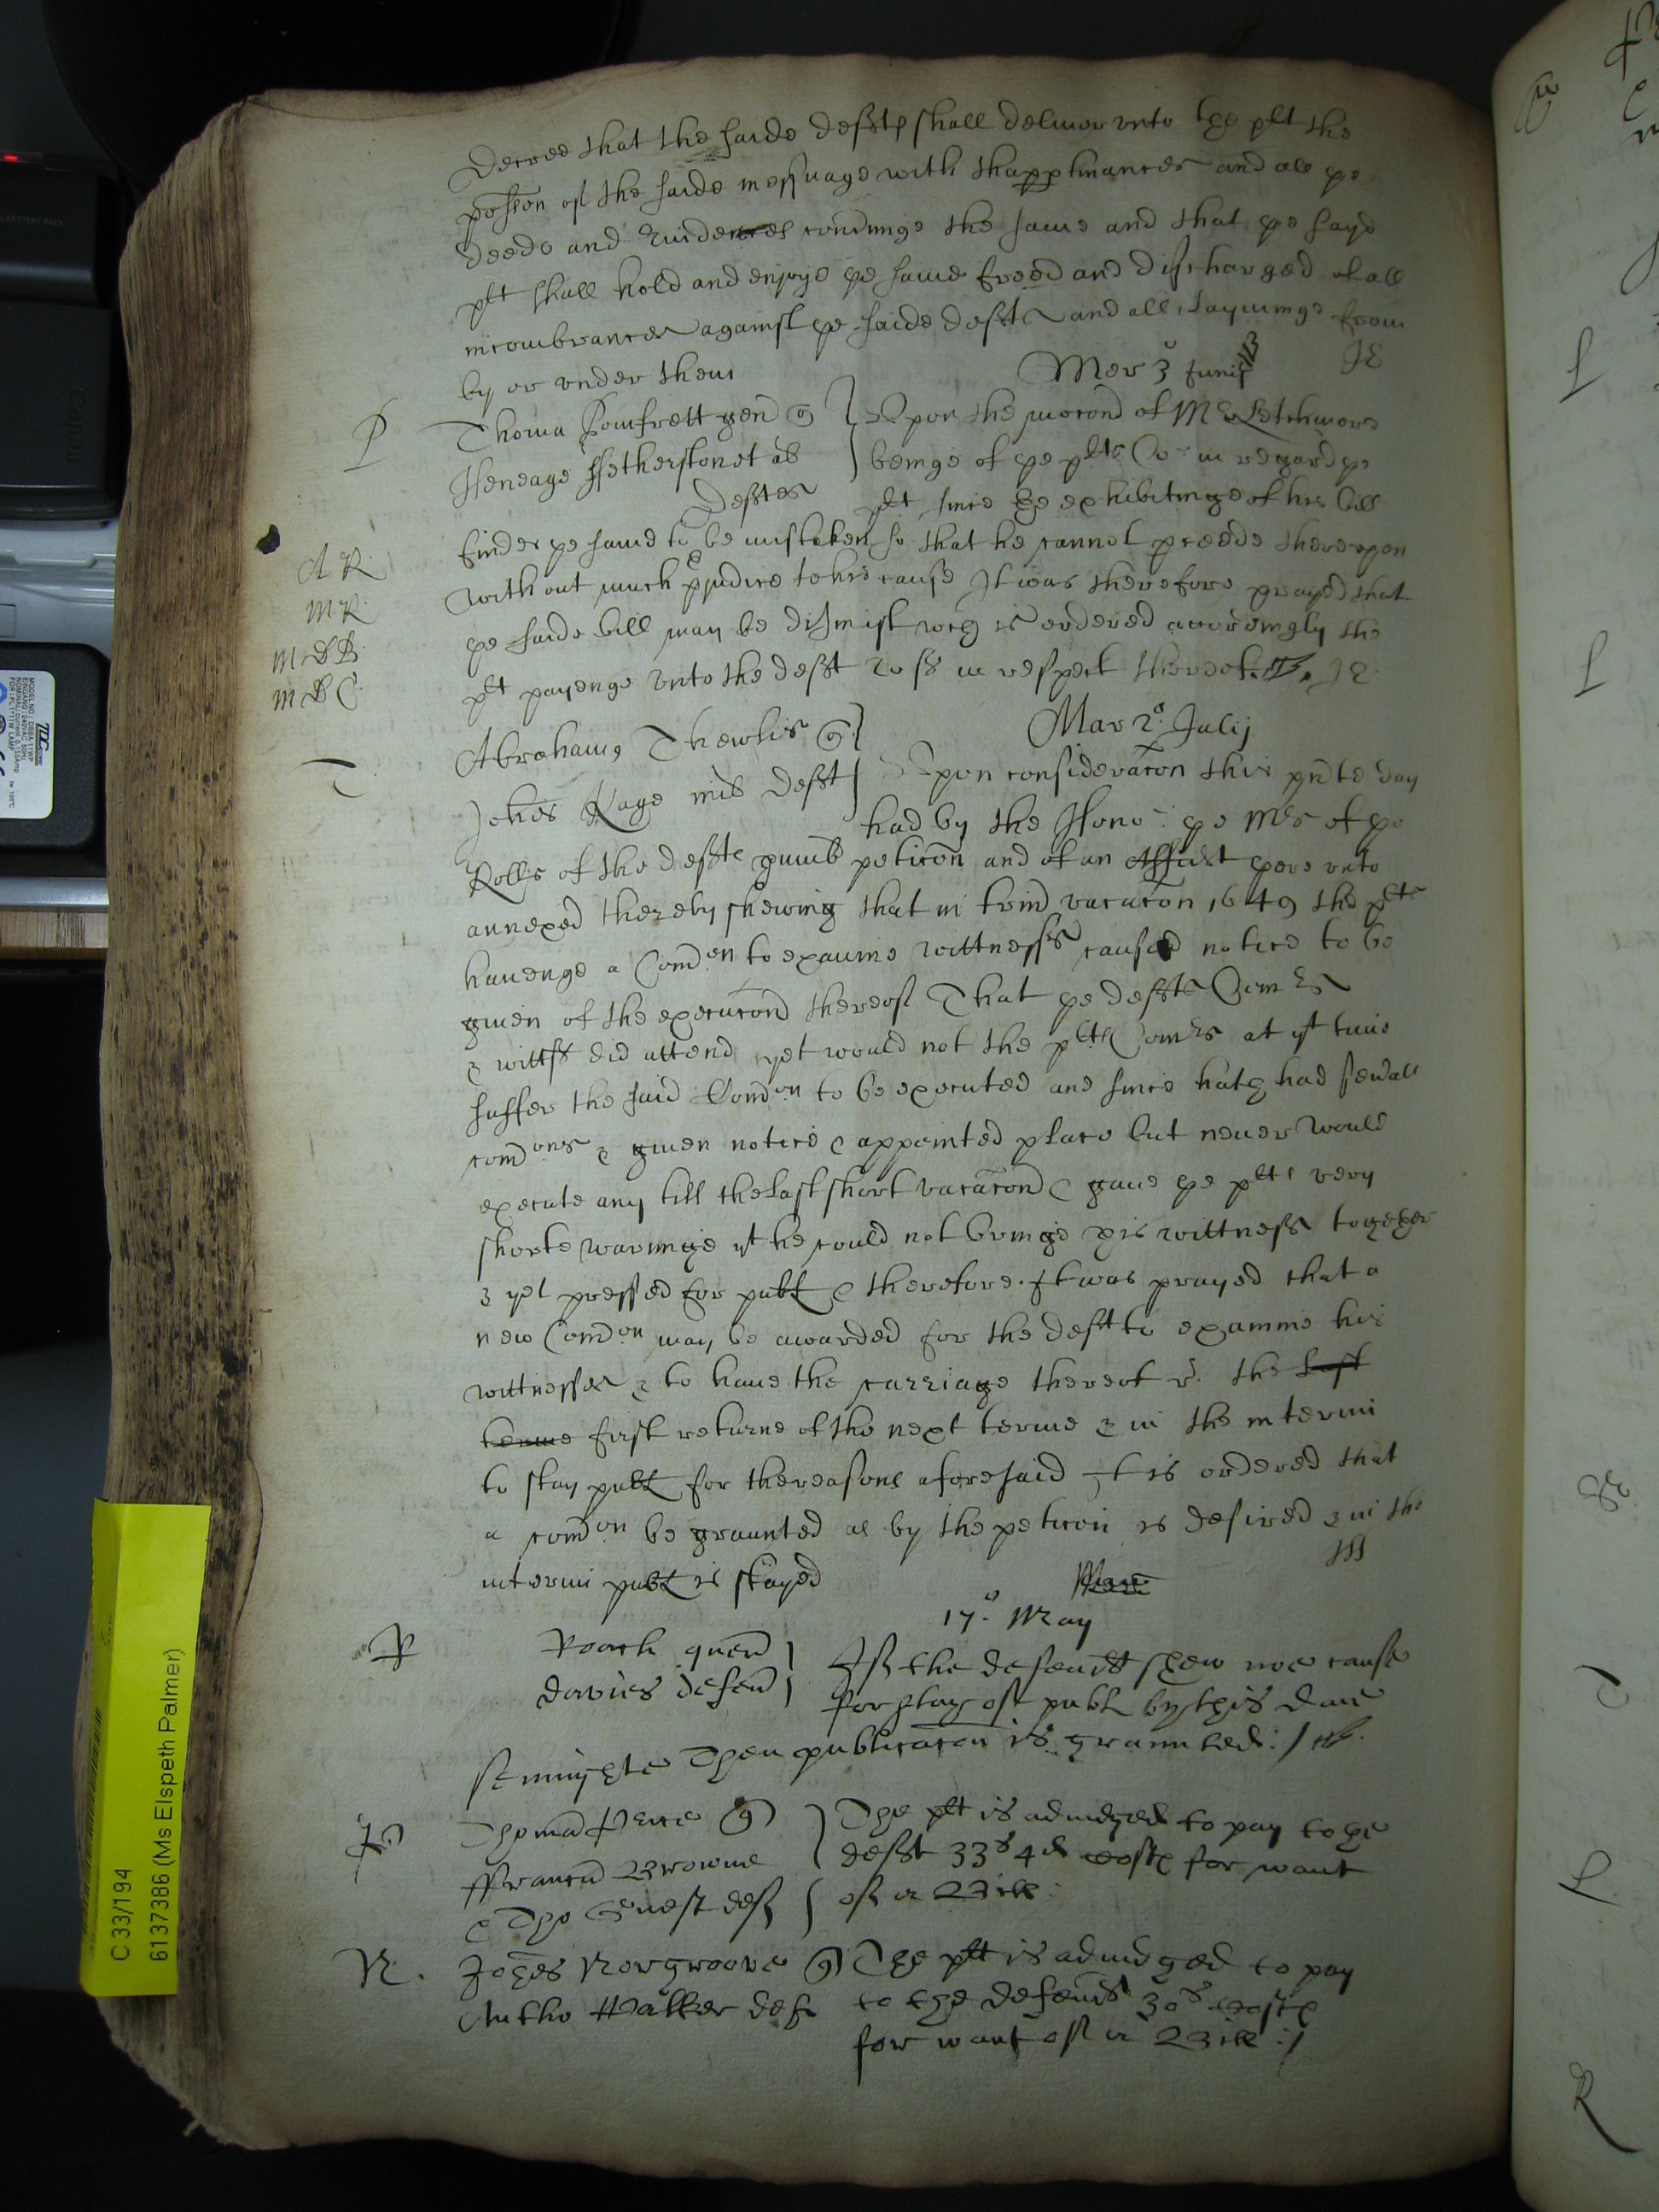 Decree that the saide defstp shall deliuer vnto the plt the
possion of the saide messuage with thapptinances and all ye
deeds and Euidences concinge the same and that ye sayd
plt shall hold and enjoye ye same freed and discharged of all
incombrances against ye saide defts and all clayminge from
by or vnder them
Mer 3° Junij JE
P Thoma Pomfrett gen q
Heneage ffetherstone et al
Deftes
Vpon the mocond of Mr Letchmore
beinge of ye plts Co in regard ye
plt since he exhibitinge of his bill
findes ye same to be mistaken so that he cannot pceede therevpon
without much pjudice to his cause It was therefore prayed that
ye saide bill may be dismist wch is ordered accordingly the
plt payenge vnto the deft 20 ss in respect thereof JE
A R
M R
M D B
M D C
Mar 2° Julij
T Abraham Thewlis q
Johes Kage mil Deft
Vpon consideracon this pnte day
had by the Hono ye Mr of ye
Rolls of the defte humb peticon and of an Affidt there vnto
annexed thereby shewing that in trin vacacon 1649 the plte
hauenge a Comon to examine wittnesses caused notice to be
giuen of the execucond thereof That ye defts Comrs
& wittss did attend yet would not the plts Comrs at yt time
suffer the said Comon to be executed and since hath had seuall
comons & giuen notice & appointed place but neuer would
execute any till the last short vacacond & gaue ye plt very
shorte warninge yt he could not bringe his wittness together
& yet pressed for publ & therefore It was prayed that a
new Comon may be awarded for the deft to examine his
wittnesses & to haue the carriage thereof r. the last
terme first returne of the next terme & in the interim
to stay publ for the reasons aforesaid It is ordered that
a comon be graunted as by the peticon is desired & in the
interim publ is stayed
Mar
17° May
R Roach quer
Davies defen
If the defendt shew noe cause
for stay of publ by this daie
sennighte Then publicacon is graunted
P Thoma Peirce q
ffrancis Browne
& Tho Guest def
The plt is adiudged to pay to ye
deft 33s 4d costs for want
of a Bill
N. Johes Norgroove q
Antho Walker def
The plt is adiudged to pay
to the defend 30s costs
for want of a Bill
C 33/194
6137386 (Ms Elspeth Palmer)